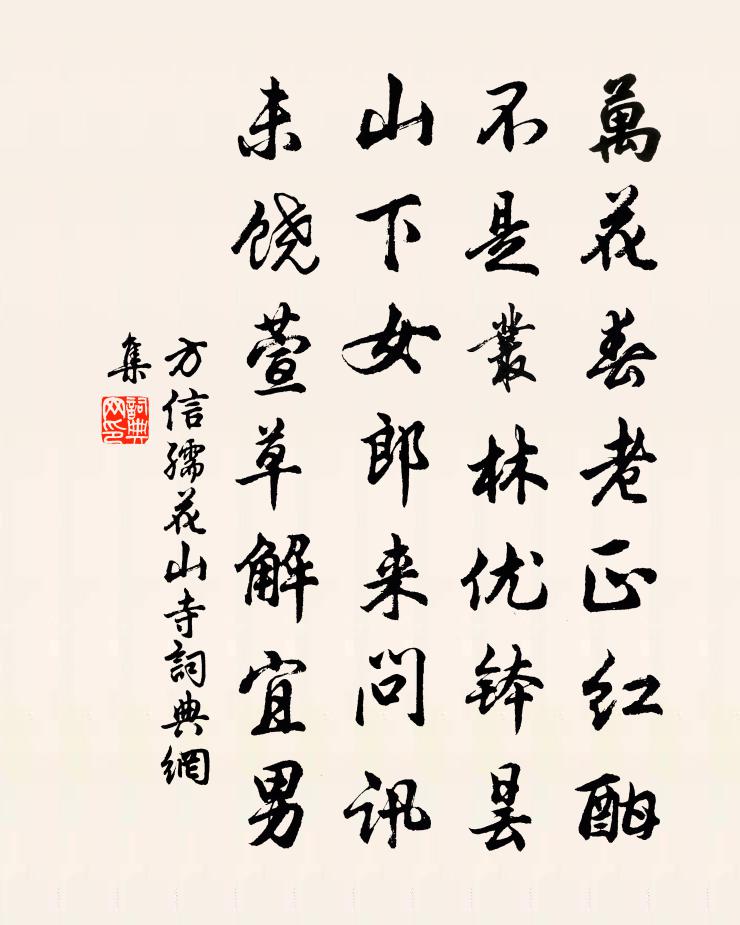 萬花春老正红酣
不是叢林优钵昙
山下女郎来问讯
未饶萱草解宜男
方信孺花山寺詞典網
集
詞典
网印